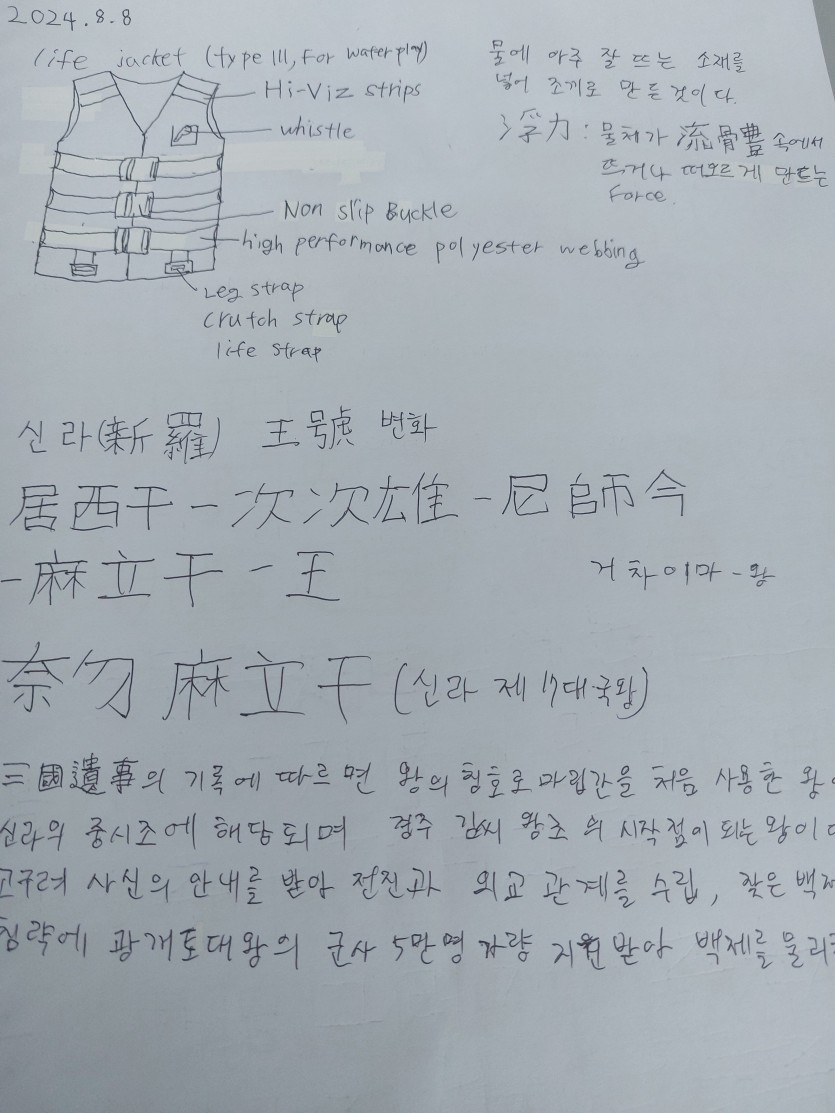 2024.8.8
life jacket (type III, for water play)
Hi-Viz strips
whistle
Non slip Buckle
high performance polyester webbing
Leg strap
crutch strap
life strap
물에 아주 잘 뜨는 소재를
넣어 조끼로 만든 것이다.
浮力: 물체가 流骨豊 속에서
뜨거나 떠오르게 만드는
Force.
신라(新羅) 王號 변화
居西干-次次雄-尼師今
-麻立干-王
거차이마-왕
奈勿 麻立干 (신라 제 17대 국왕)
三國遺事의 기록에 따르면 왕의 칭호로 마립간을 처음 사용한 왕
신라의 중시조에 해당되며 경주 김씨 왕조의 시작점이 되는 왕이
고구려 사신의 안내를 받아 전진과 외교 관계를 수립, 잦은 백제
침략에 광개토대왕의 군사 5만명 가량 지원받아 백제를